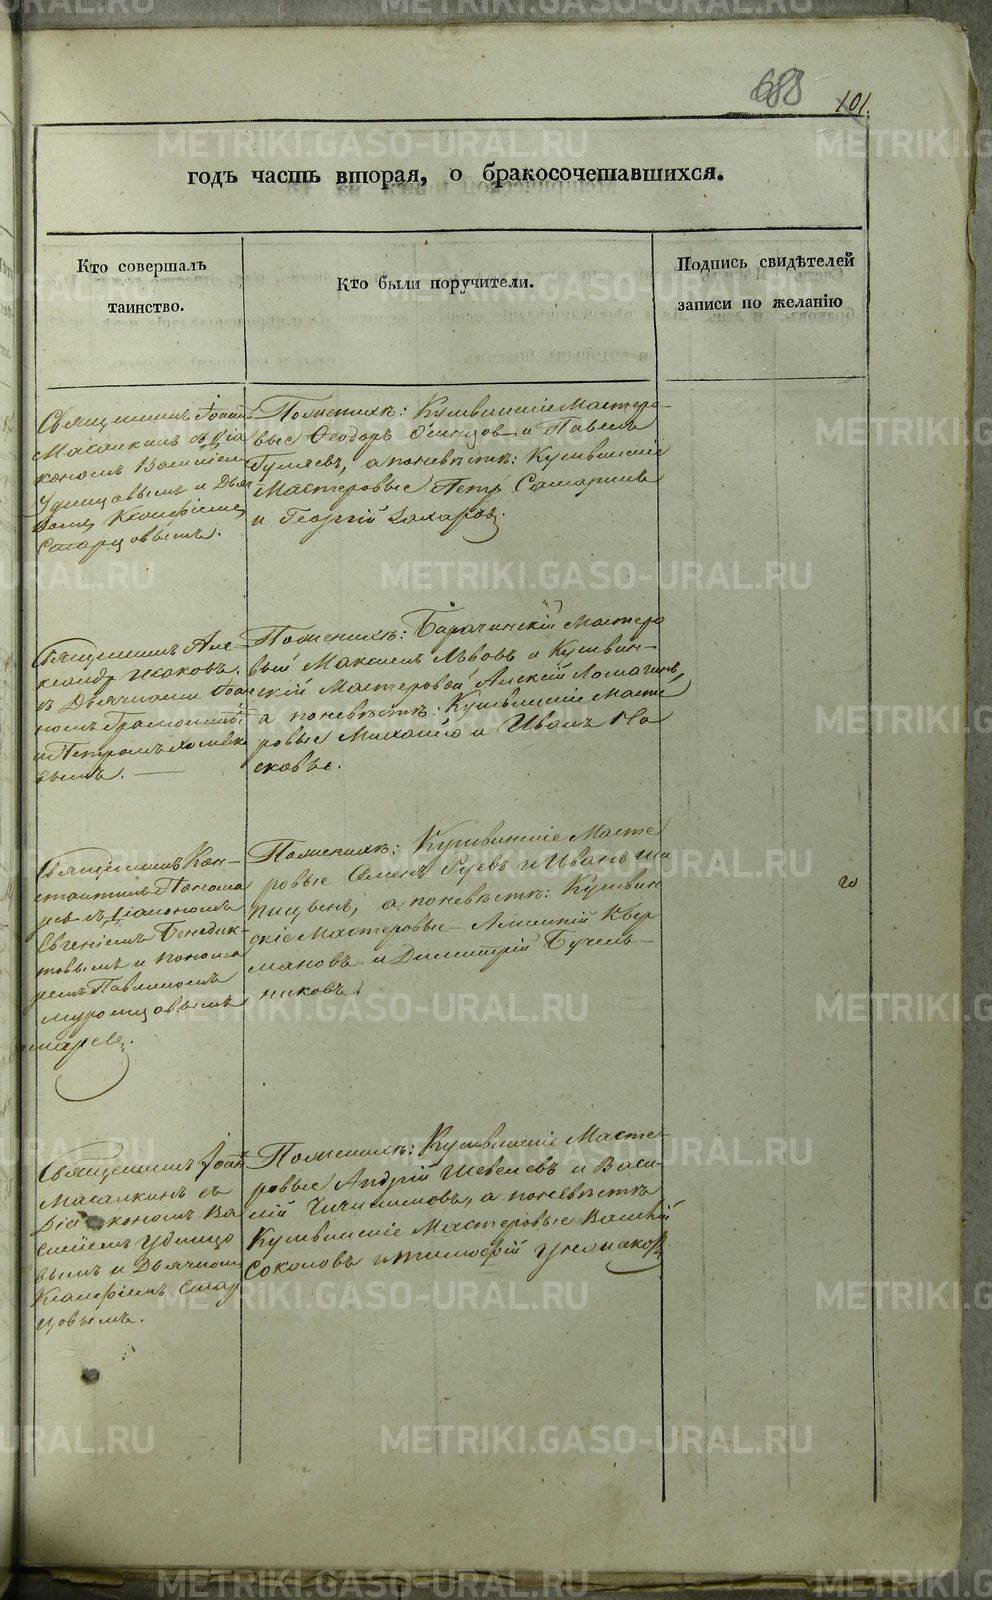 688 101.
годъ часть вторая, о бракосочетавшихся.
Кто совершалъ
таинство.
Кто были поручители.
Подпись свидѣтелей
записи по желанію
Священникъ Іоаннъ
Масалкинъ съ Діа
кономъ Василіемъ
Удинцовымъ и Дьяч
комъ Ксанфіемъ
Старцовымъ.
По женихѣ: Кушвинскіе Мастеро-
вые Ѳеодоръ Осинцов и Павелъ
Гуляевъ, а по невѣстѣ: Кушвинскіе
Мастеровые Петръ
и Георгій Захаров.
Священникъ Але
ксандр
съ Дьячками Іоан
номъ
и Петромъ
вымъ.
По женихѣ: Баранчинскій Мастеро
вый Максимъ Львовъ и Кушвин-
скій Мастеровой Алексій Ломагинъ,
а по невѣстѣ: Кушвинскіе Масте
ровые Михаило и Иванъ Но
сковы.
Священникъ Кон-
стантинъ Пономо
ревъ съ Діакономъ
Евгеніемъ Бенедик
товымъ и понома
ремъ Павлиномъ
Муромцовымъ
По женихѣ: Кушвинскіе Масте
ровые Семенъ Гуевъ и Иванъ Ши
пицынъ, а по невѣстѣ: Кушвин
скіе Мастеровые Алексій
мановъ и Димитрій Бучель-
никовъ.
Священникъ Іоанн
Масалкинъ съ
Діакономъ Ва
силіемъ Удинцо
вымъ и Дьячкомъ
Ксанфіемъ Стар
цовымъ.
По женихѣ: Кушвинскіе Масте-
ровые Андрей Шевелевъ и Васи
лій Чичилимовъ, а по невѣстѣ
Кушвинскіе Мастеровые Василій
Соколовъ и Тимофей
METRIKI.GASO-URAL.RU